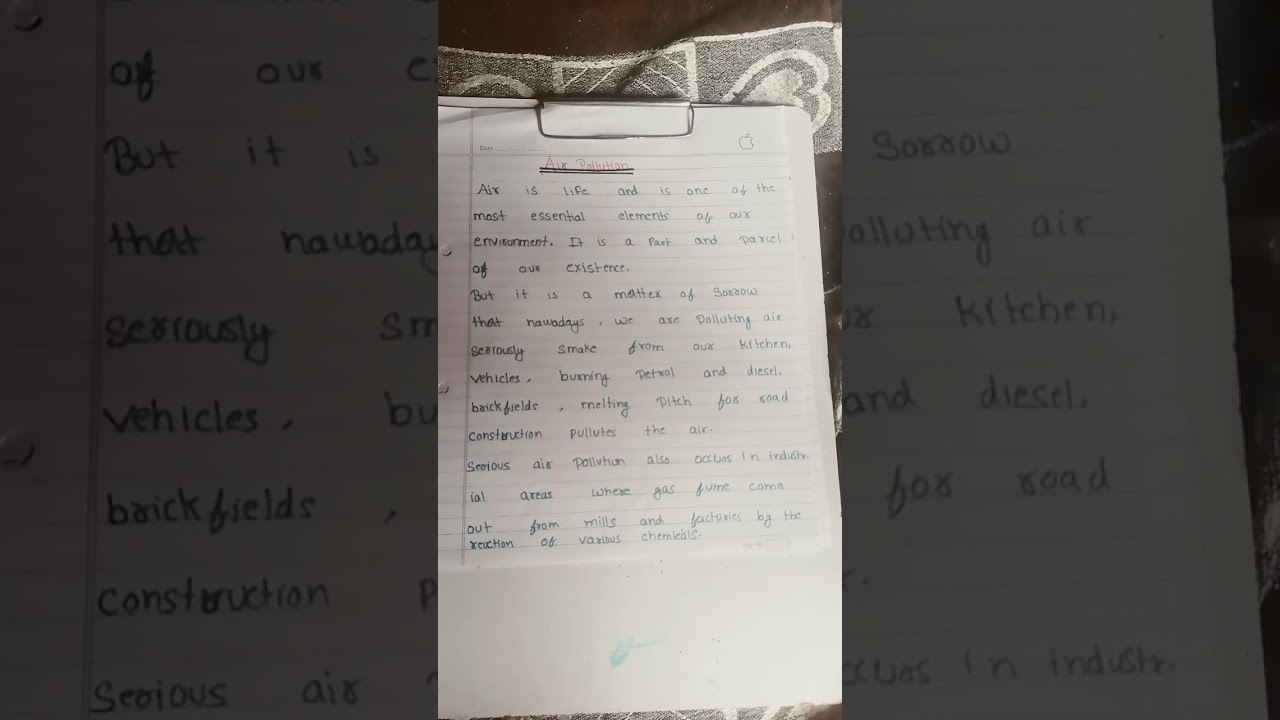 Date
Air Pollution
Air is life and is one of the
most essential elements of our
environment. It is a Part and parcel
of our existence.
But it is a matter of Sorrow
that nawadays, we are Polluting air
seriously smake from our kitchen,
vehicles, burning petrol and diesel.
brickfields, melting pitch for road
construction pullutes the air.
Serious air pollution also occurs in industr
ial areas where gas fume come
out from mills and factories by the
reaction of various chemicals.